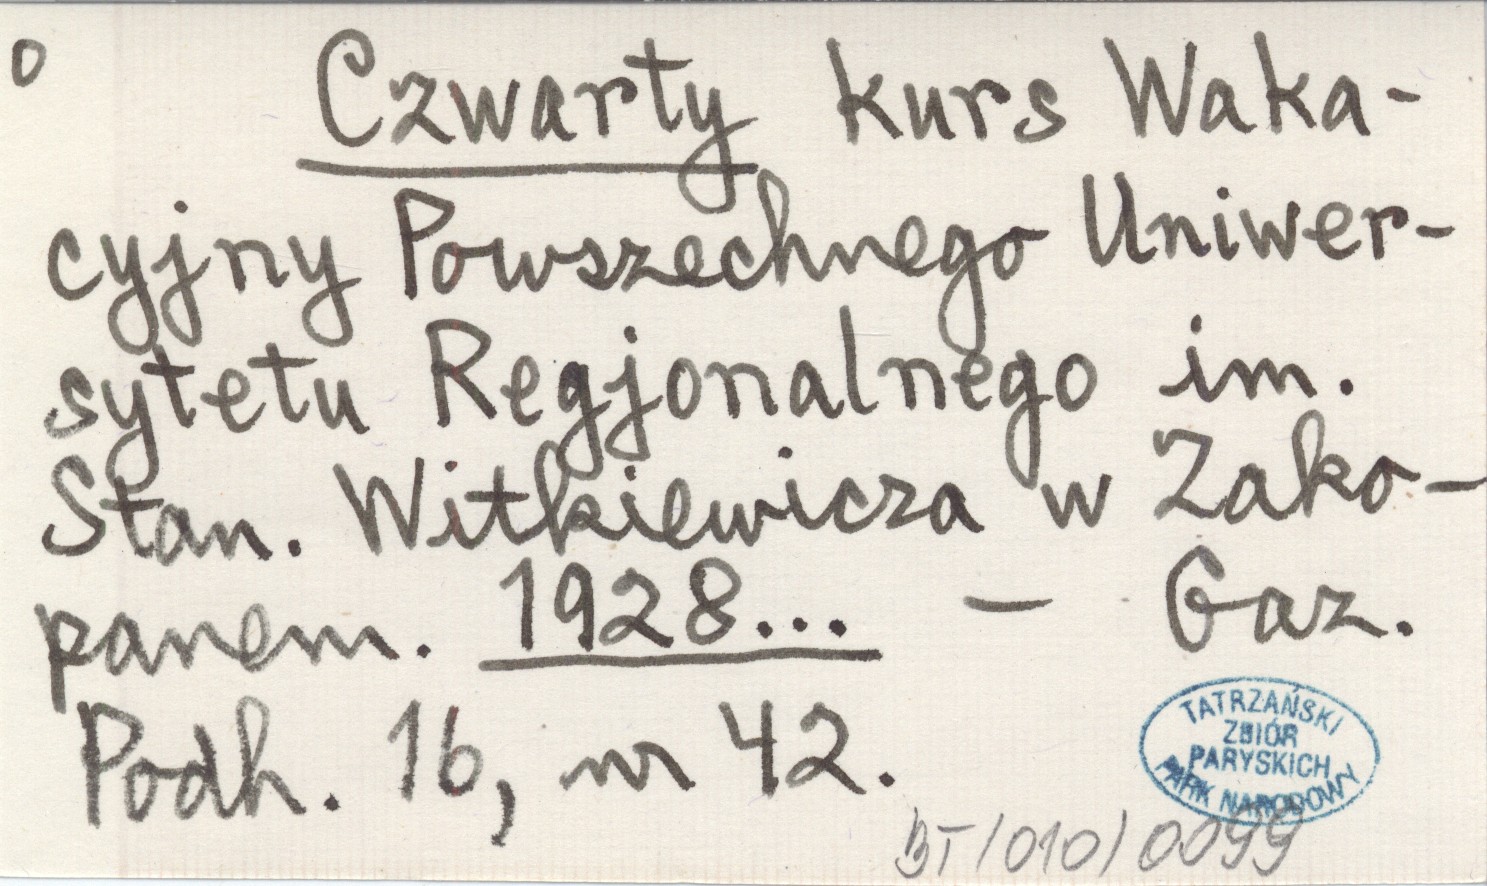 o Czwarty kurs Waka-
cyjny Powszechnego Uniwer-
sytetu Regjonalnego im.
Stan. Witkiewicza w Zako-
panem. 1928... — Gaz.
Podh. 16, nr 42.
TATRZAŃSKI
ZBIÓR
PARYSKICH
PARK NARODOWY
BT/010/0099